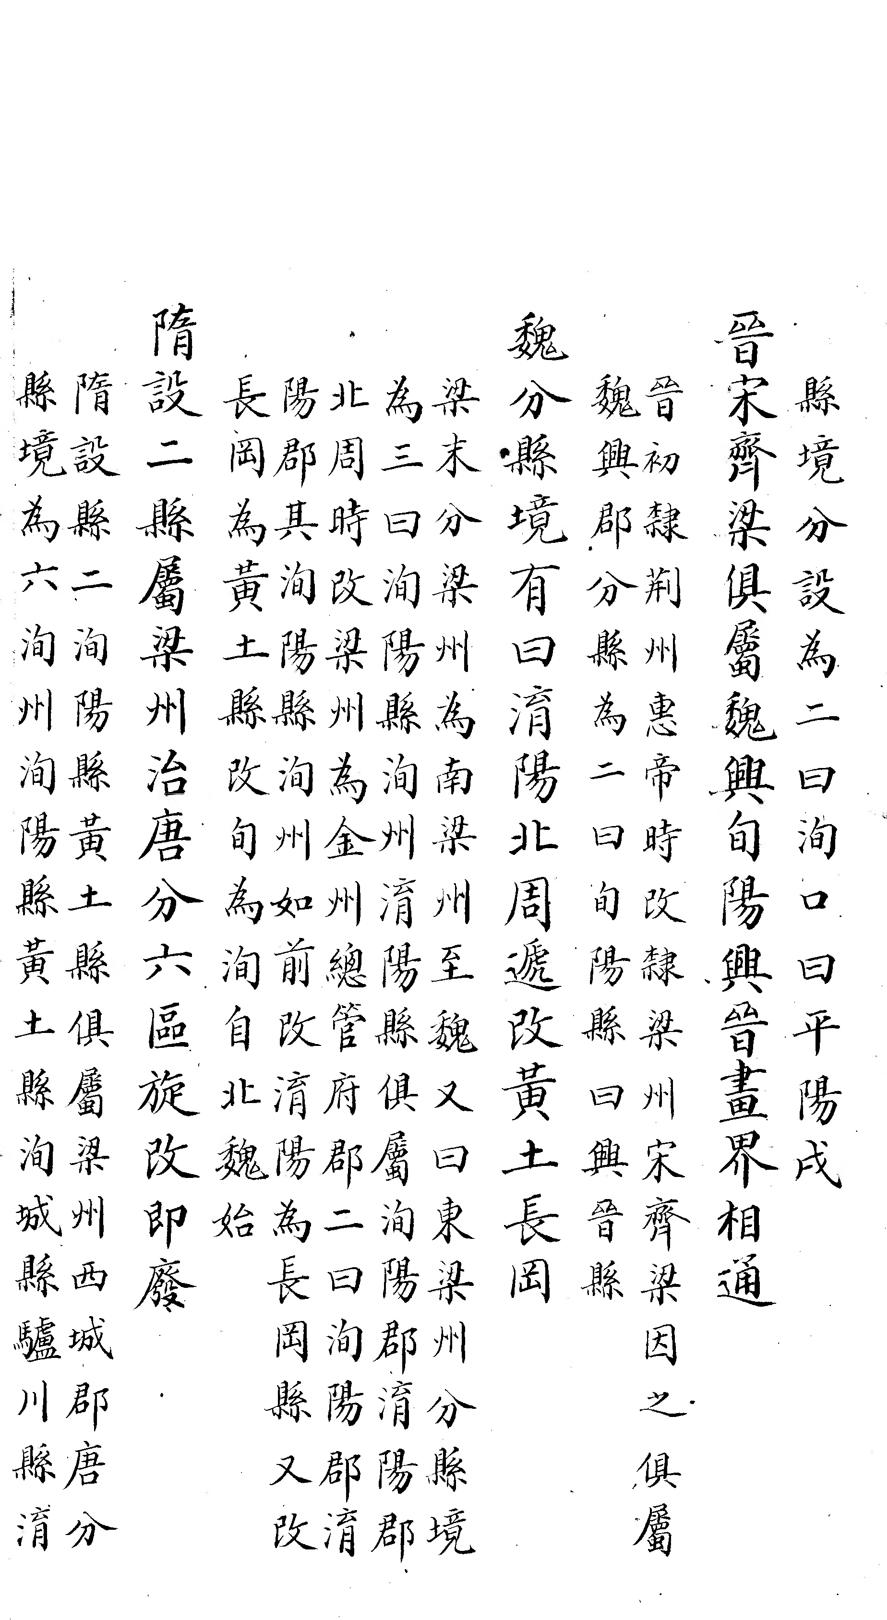 縣境分設為二曰洵口曰平陽戍
晉宋齊梁俱屬魏興旬陽興晉畫界相通
晉初隸荆州惠帝時改隸梁州宋齊梁因之俱屬
魏興郡分縣為二曰旬陽縣曰興晉縣
魏分縣境有曰淯陽北周遞改黃土長岡
梁末分梁州為南梁州至魏又曰東梁州分縣境
為三曰洵陽縣洵州淯陽縣俱屬洵陽郡淯陽郡
北周時改梁州為金州總管府郡二曰洵陽郡淯
陽郡其洵陽縣洵州如前改淯陽為長岡縣又改
長岡為黃土縣改旬為洵自北魏始
隋設二縣屬梁州治唐分六區旋改即廢
隋設縣二洵陽縣黃土縣俱屬梁州西城郡唐分
縣境為六洵州洵陽縣黃土縣洵城縣驢川縣淯